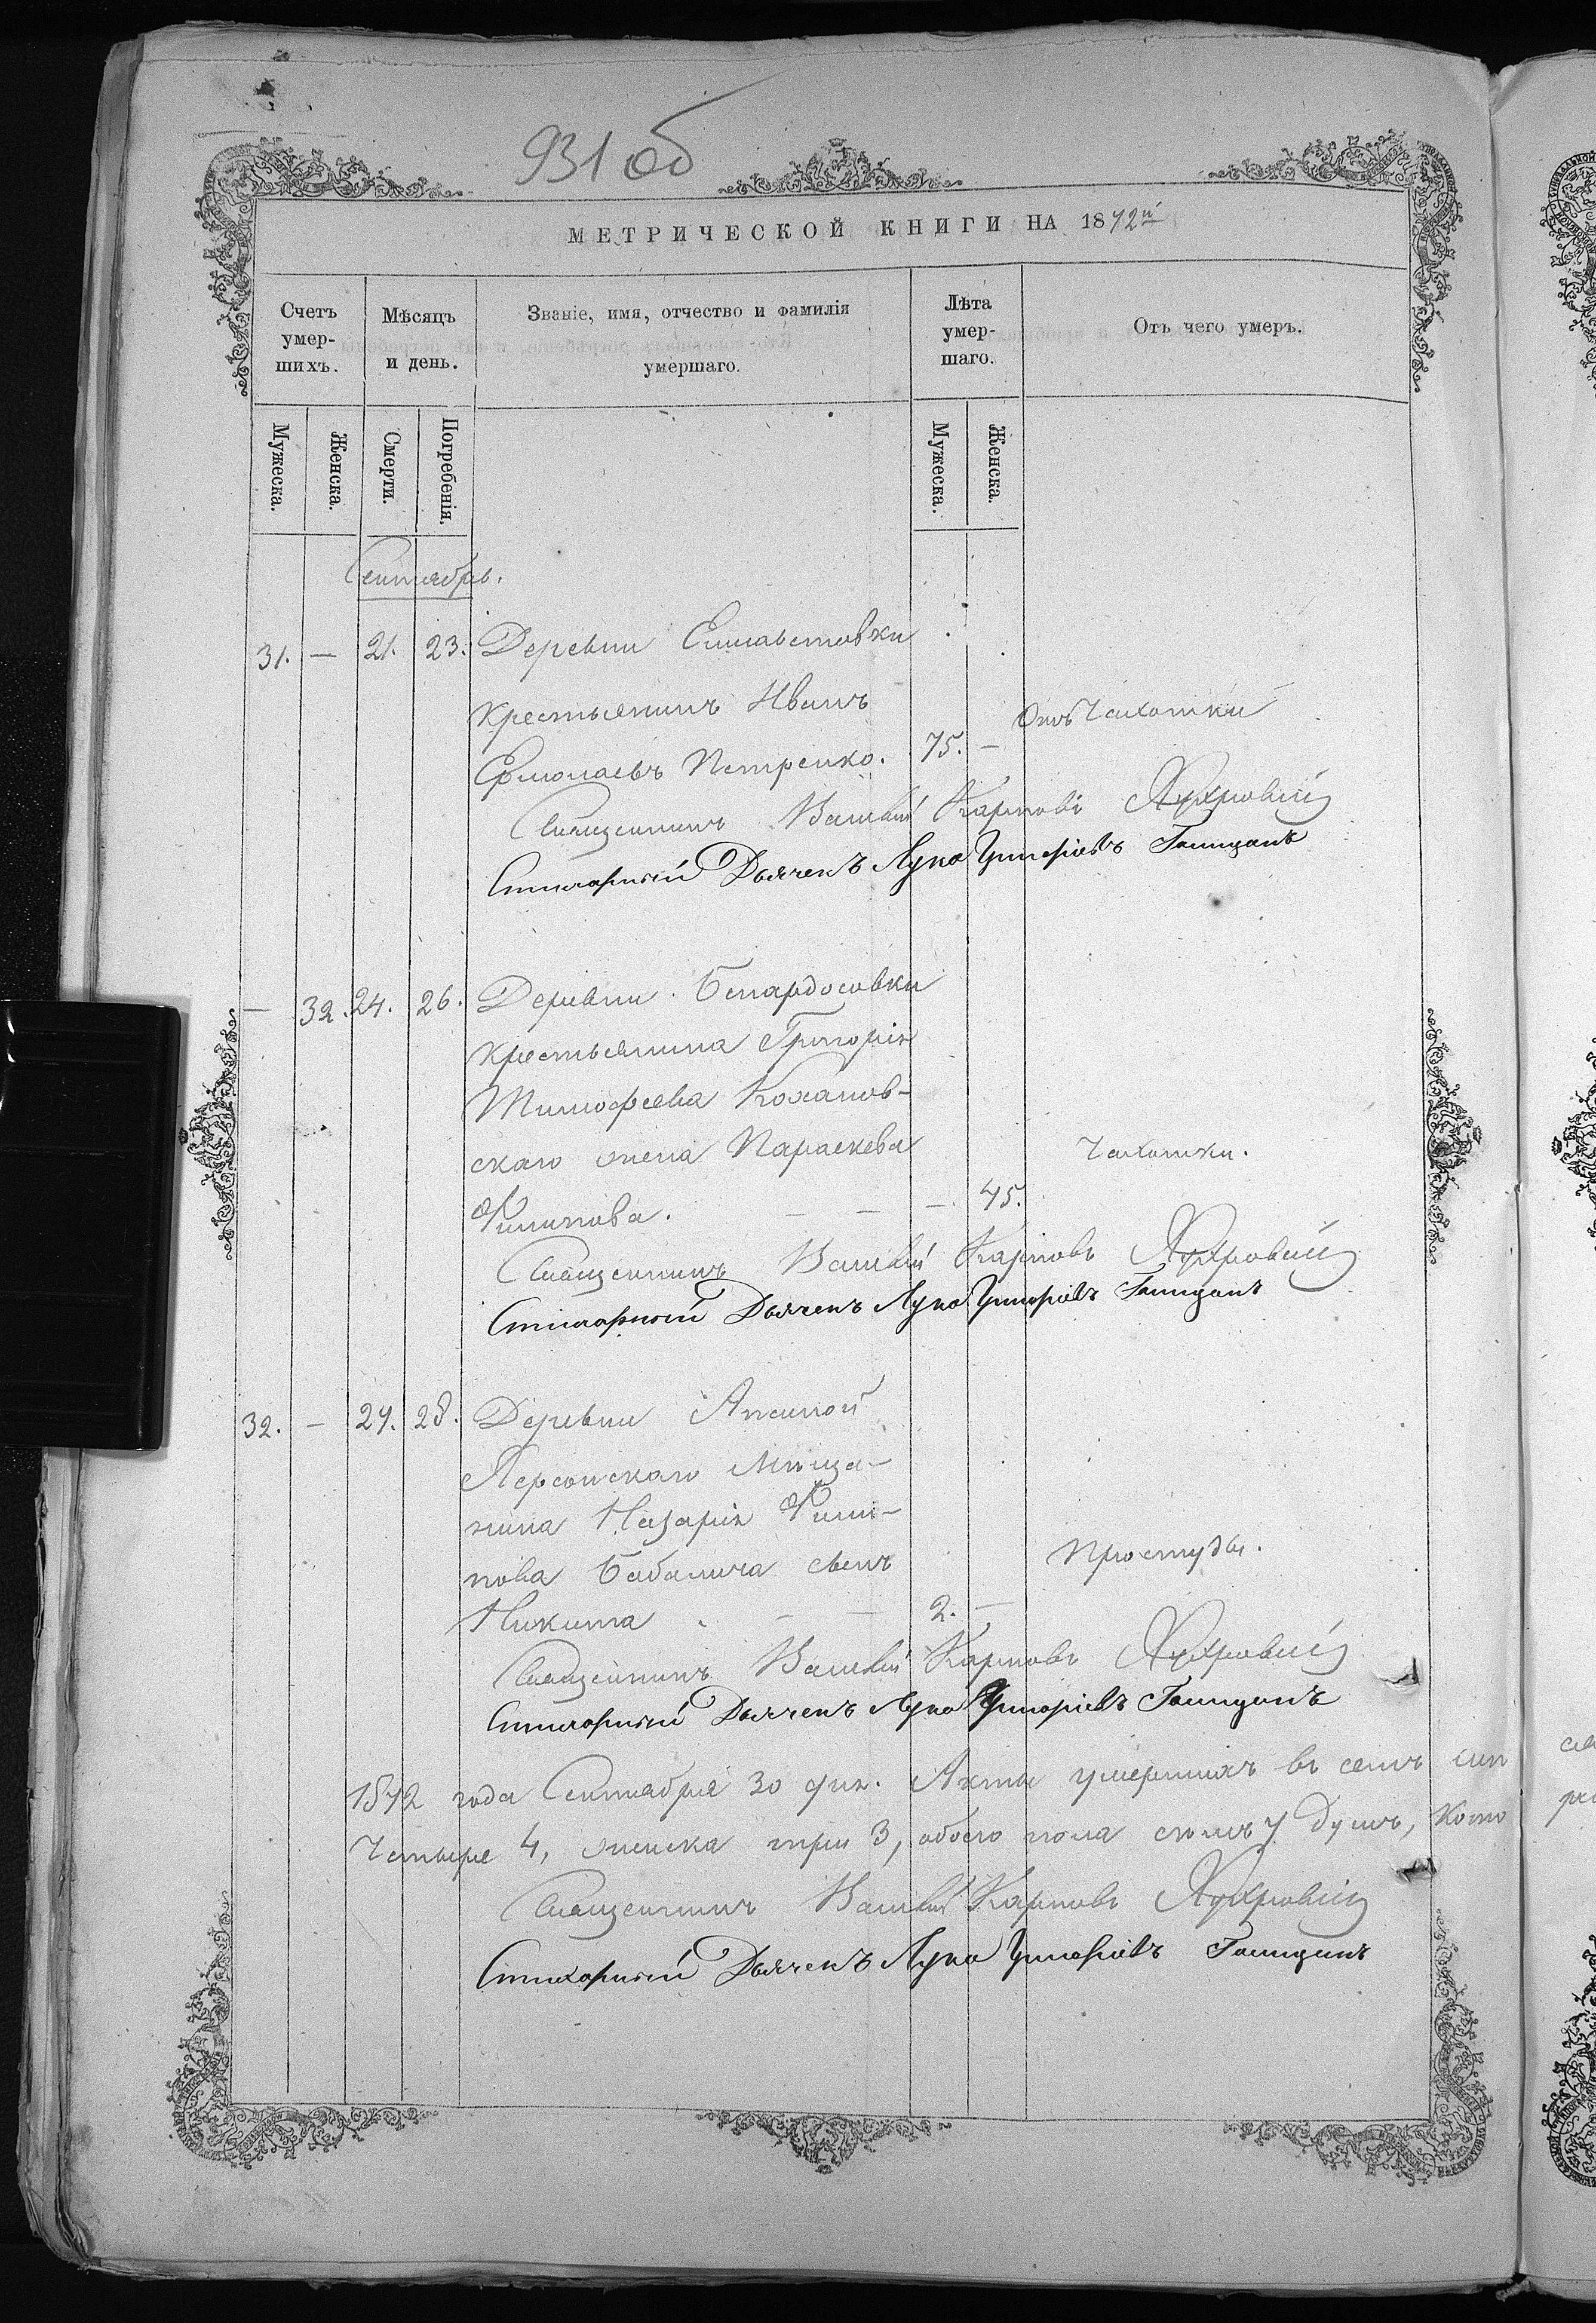 931 об
МЕТРИЧЕСКОЙ КНИГИ НА 1872й
Счетъ умер-шихъ.
Мѣсяцъ и день.
Званіе, имя, отчество и фамилія умершаго.
Лѣта умер-шаго.
Отъ чего умеръ.
Мужеска.
Женска.
Смерти.
Погребенія.
Мужеска.
Женска.
Сентябрь.
31. — 21. 23. Деревни Елисаветовки
крестьянинъ Иванъ Отъ Чахотки
Ермолаевъ Петренко. 75. —
Священникъ Василій Карповъ
Стихарный Дьячекъ Лука Григоріевъ Галицанъ
— 32. 24. 26. Деревни Бенардосовки
крестьянина Григорія
Тимофеева Коханов-
скаго жена Параскева Чахотки.
Филипова. — — — 45.
Священникъ Василій Карповъ
Стихарный Дьячекъ Лука Григоріевъ Галицанъ
32. — 27. 28. Деревни
Херсонскаго мѣща-
нина Назарія Фили-
пова сынъ Простуды.
Никита — — 2. —
Священникъ Василій Карповъ
Стихарный Дьячекъ Лука Григоріевъ Галицанъ
1872 года Сентября 30 дня. Акты умершихъ въ семъ
Четыре 4, женска три 3, обоего пола семь 7 душъ, кото
Священникъ Василій Карповъ
Стихарный Дьячекъ Лука Григоріевъ Галицанъ